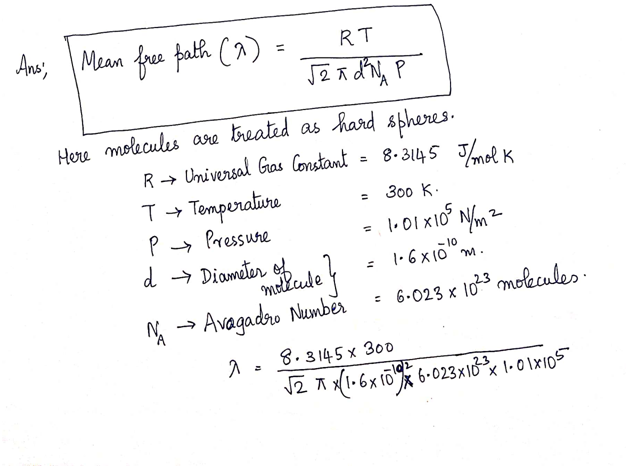 Ans; Mean free path (λ) = RT / √2 π d² N_A P
Here molecules are treated as hard spheres.
R → Universal Gas Constant = 8.3145 J/mol K
T → Temperature = 300 K.
P → Pressure = 1.01 × 10⁵ N/m²
d → Diameter of molecule } = 1.6 × 10⁻¹⁰ m.
N_A → Avagadro Number = 6.023 × 10²³ molecules.
λ = 8.3145 × 300 / √2 π × (1.6 × 10⁻¹⁰)² × 6.023 × 10²³ × 1.01 × 10⁵